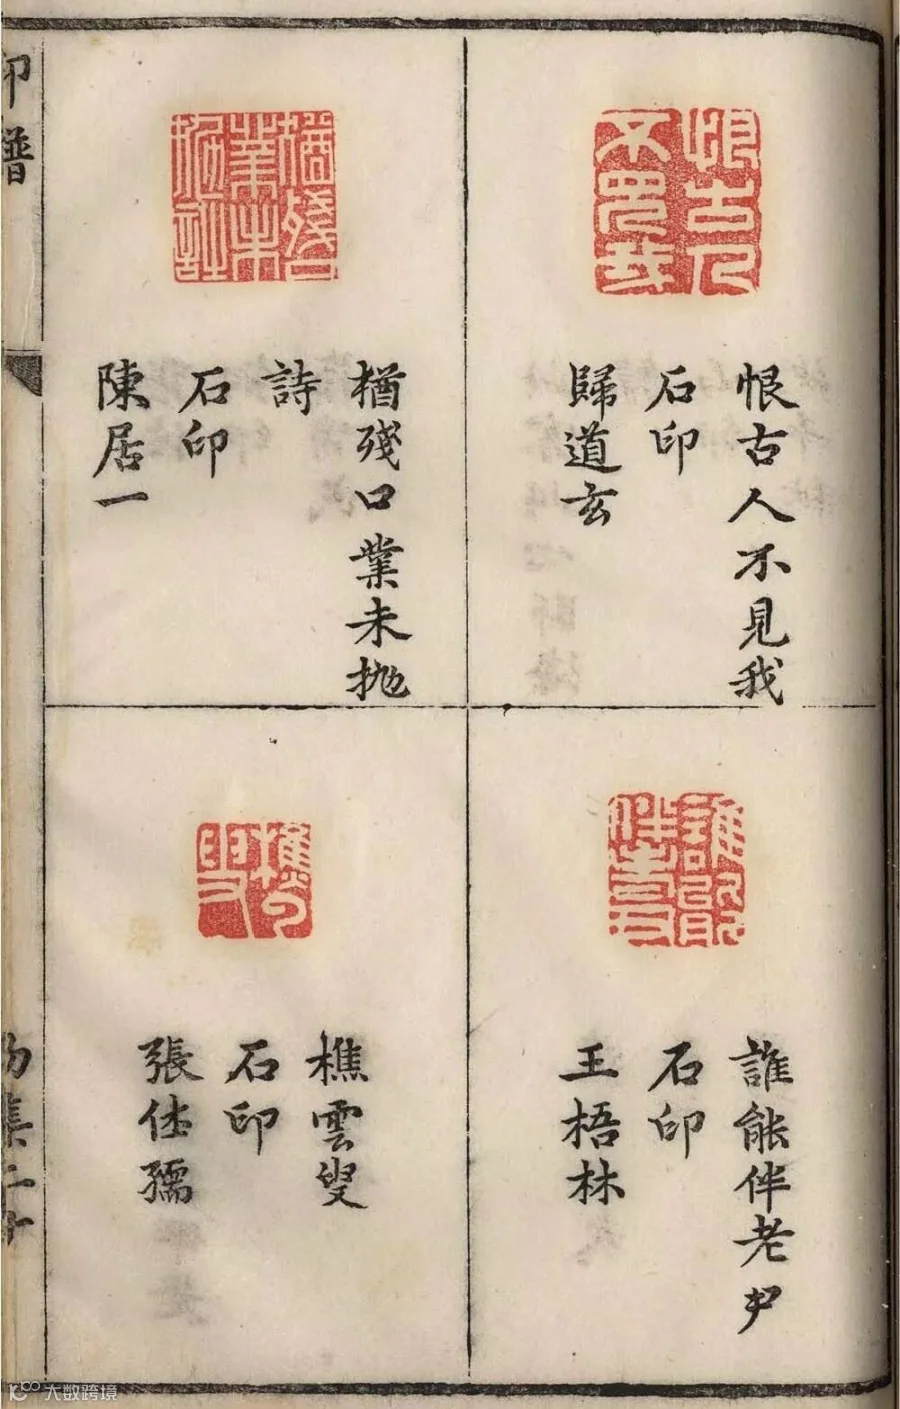 恨古人不見我
石印
歸道玄
猶殘口業未抛
詩
石印
陳居一
誰能伴老
石印
王梧林
樵雲叟
石印
張佳孺
印譜
大数跨境